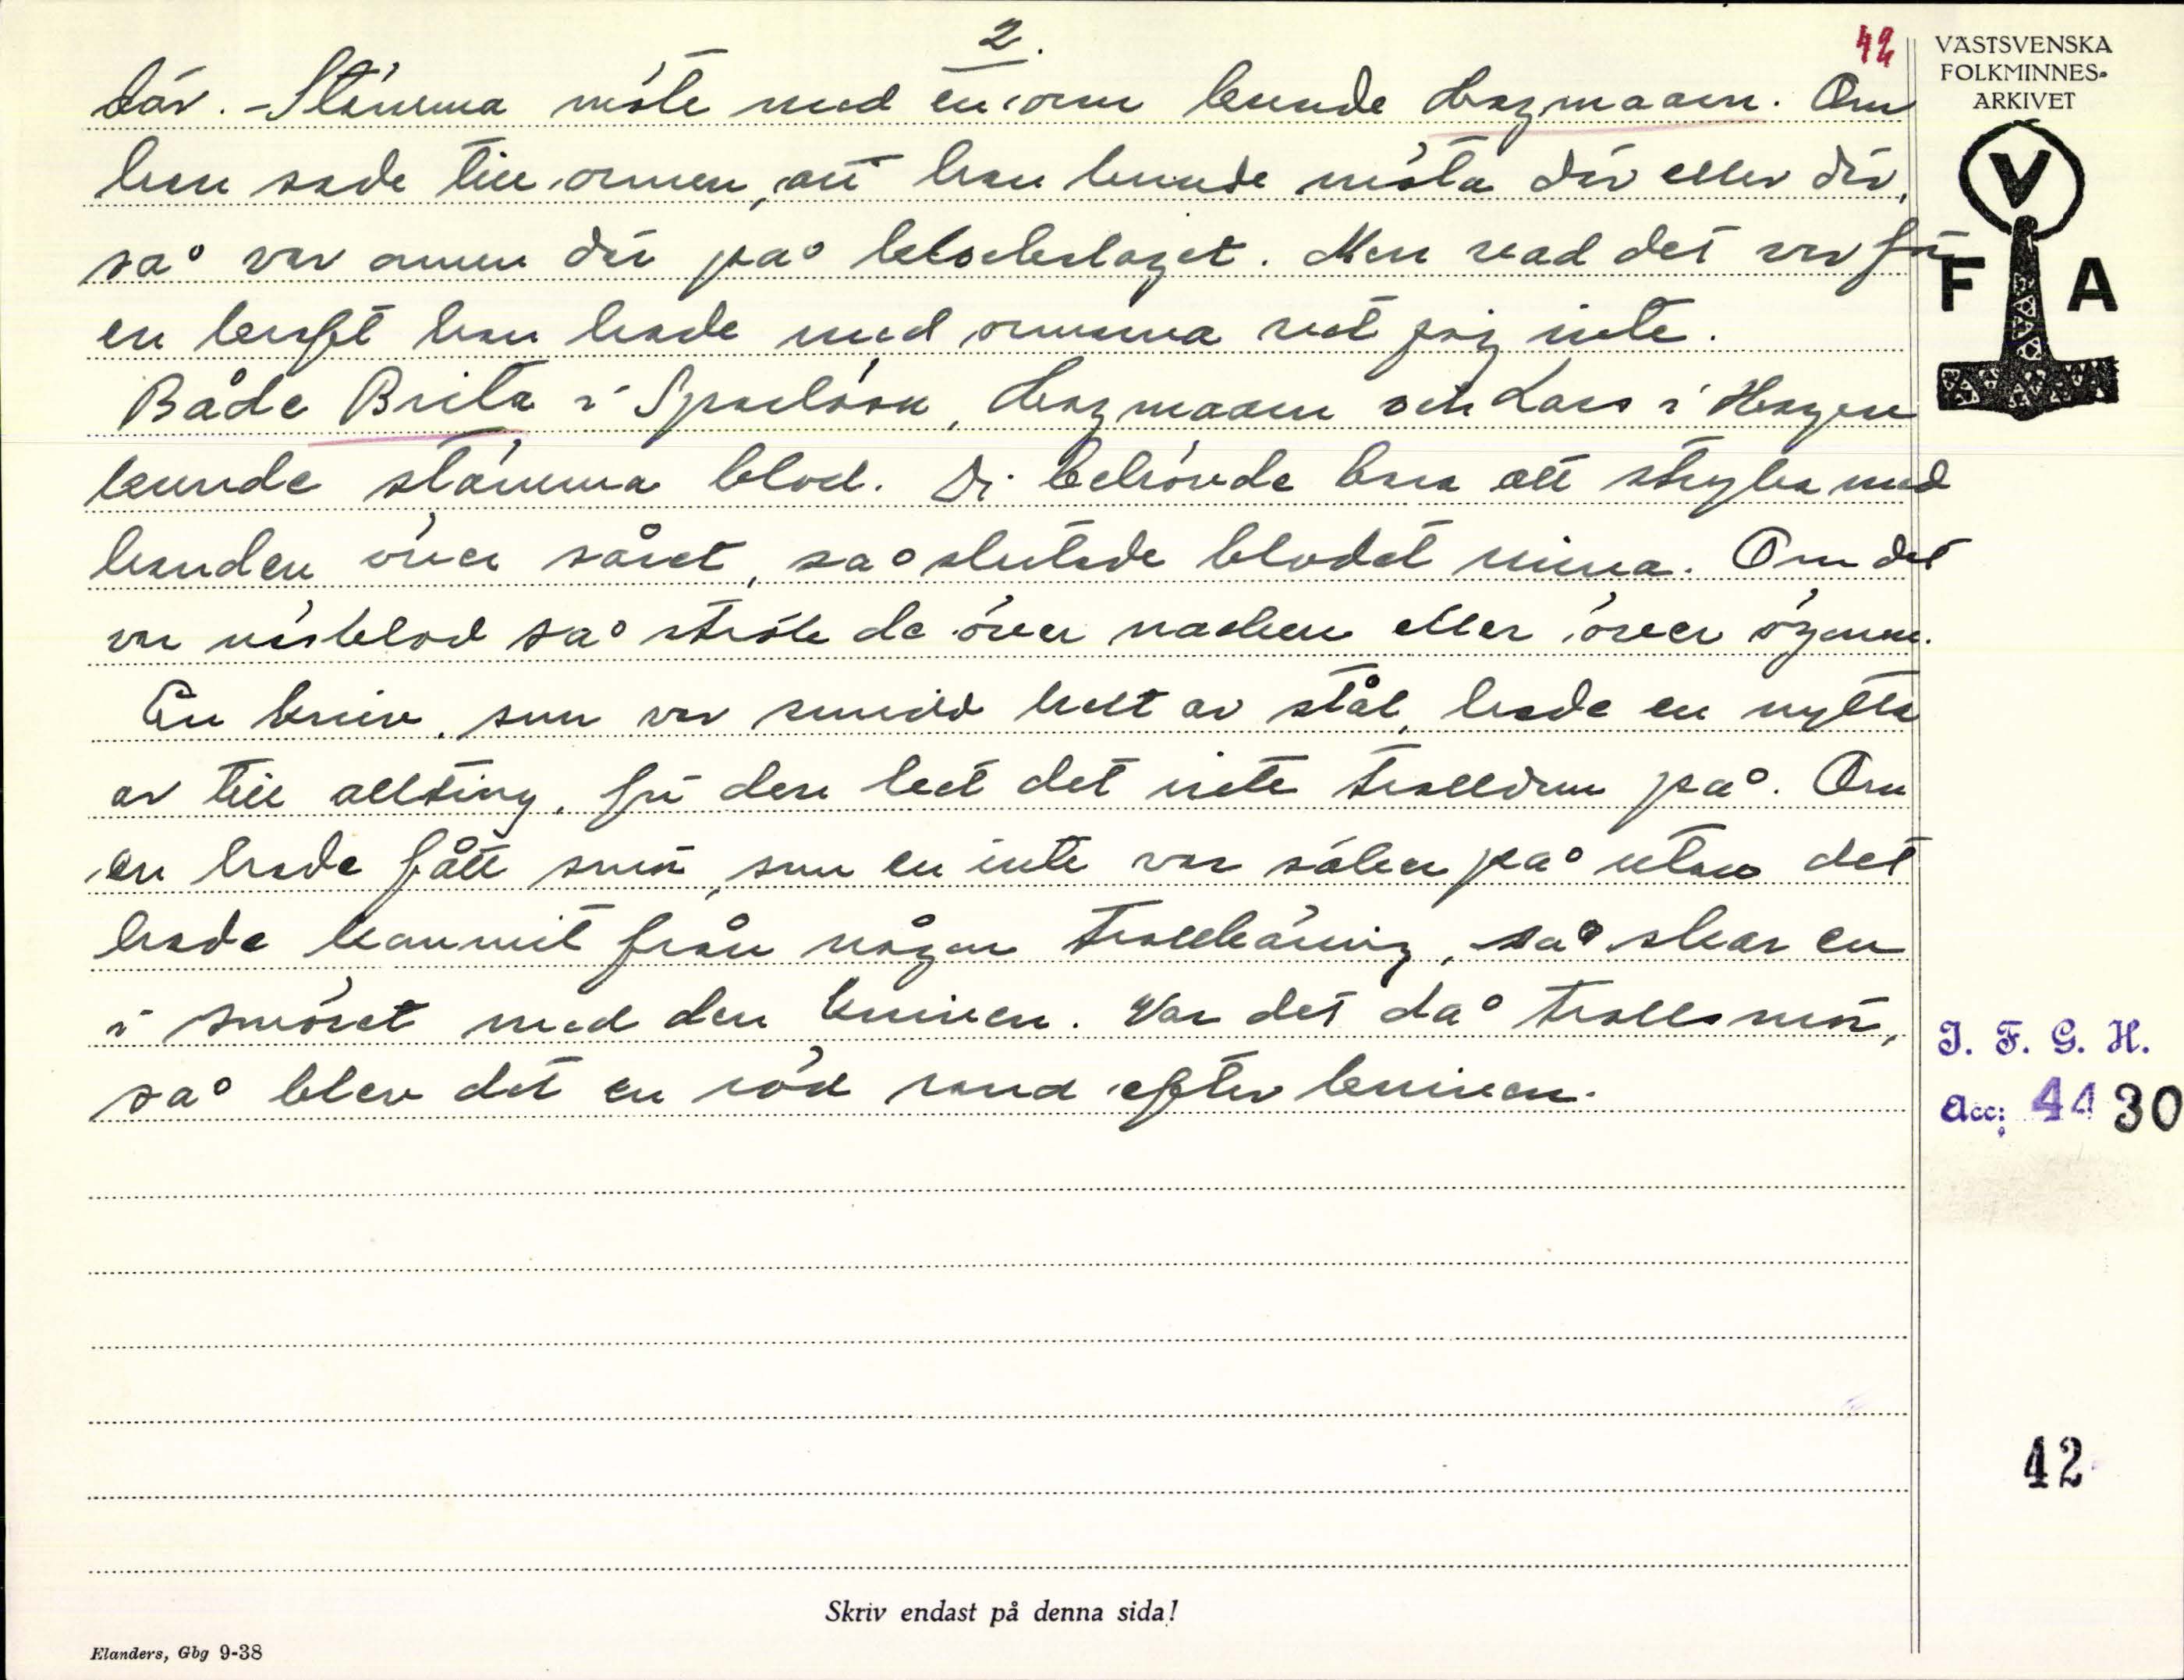 2.
42
där. - Stämma möte med en orm kunde Hagmaam. Om
han sade till ormen, att han kunde möta där eller där,
så var ormen där på klockslaget. Men vad det var för
en kraft han hade med ormarna vet jag inte.
Både Brita i Sparlösa, Hagmaam och Lars i Hagen
kunde stämma blod. Di behövde bara att stryka med
handen över såret, så slutade blodet rinna. Om det
var näsblod så strök de över nacken eller över ögonen.
En kniv, som var smidd helt av stål, hade en nytta
av till allting, för den bet det inte trolldom på. Om
en hade fått smör, som en inte var säker på utan det
hade kommit från någon trollkäring, så skar en
i smöret med den kniven. Var det då trollsmör,
så blev det en röd rand efter kniven.
VÄSTSVENSKA
FOLKMINNES-
ARKIVET
V
F A
I. F. G. H.
Acc: 4430
42
Skriv endast på denna sida!
Elanders, Gbg 9-38